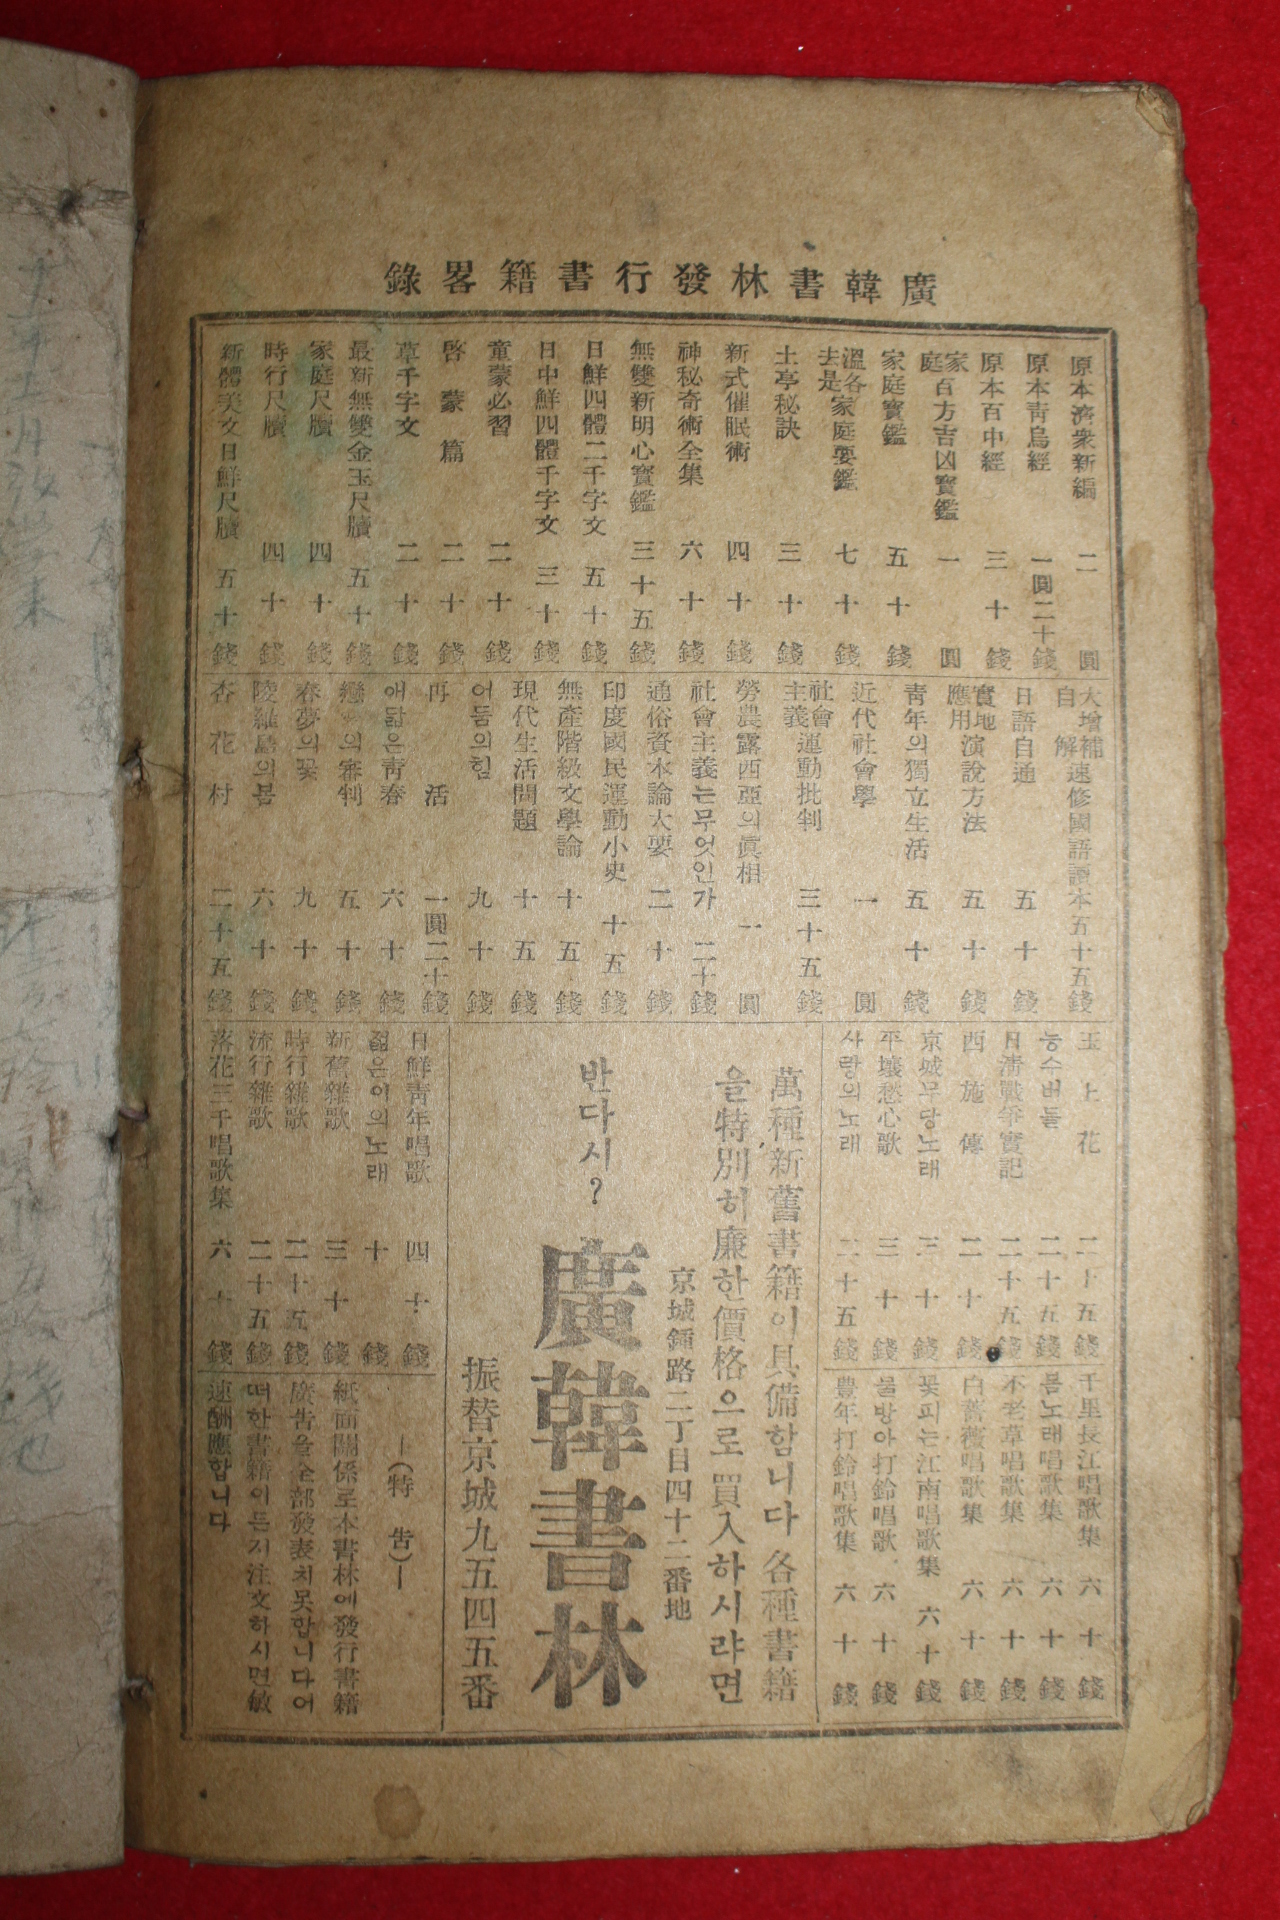 廣韓書林發行書籍畧錄
原本濟衆新編 二圓
原本靑烏經 一圓二十錢
原本百中經 三十錢
家庭百方吉凶寶鑑 一圓
家庭寶鑑 五十錢
溫故是各家庭要鑑 七十錢
土亭秘訣 三十錢
新式催眠術 四十錢
神秘奇術全集 六十錢
無雙新明心寶鑑 三十五錢
日鮮四體二千字文 五十錢
日中鮮四體千字文 三十錢
童蒙必習 二十錢
啓蒙篇 二十錢
草千字文 二十錢
最新無雙金玉尺牘 五十錢
家庭尺牘 四十錢
時行尺牘 四十錢
新體美文日鮮尺牘 五十錢
大增補自解速修國語讀本 五十五錢
日語自通 五十錢
實地應用演說方法 五十錢
靑年의獨立生活 五十錢
近代社會學 一圓
社會主義運動批判 三十五錢
勞農露西亞의眞相 一圓
社會主義는무엇인가 二十錢
通俗資本論大要 二十錢
印度國民運動小史 十五錢
無產階級文學論 十五錢
現代生活問題 十五錢
어둠의힘 九十錢
再活 一圓二十錢
애닯은靑春 六十錢
戀의審判 五十錢
春夢의꽃 九十錢
陵羅島의봄 六十錢
杏花村 二十五錢
玉上花 二十五錢
능수버들 二十五錢
日淸戰爭實記 二十五錢
西施傳 二十錢
京城무당노래 三十錢
平壤愁心歌 三十錢
사랑의노래 二十五錢
千里長江唱歌集 六十錢
봄노래唱歌集 六十錢
不老草唱歌集 六十錢
白薔薇唱歌集 六十錢
꽃피는江南唱歌集 六十錢
물방아打鈴唱歌 六十錢
豊年打鈴唱歌集 六十錢
萬種新舊書籍이具備합니다 各種書籍
을特別히廉한價格으로買入하시랴면
京城鍾路二丁目四十二番地
반다시? 廣韓書林
振替京城九五四五番
日鮮靑年唱歌 四十錢
젊은이의노래 十錢
新舊雜歌 三十錢
時行雜歌 二十五錢
流行雜歌 二十五錢
落花三千唱歌集 六十錢
—(特告)—
紙面關係로本書林에發行書籍
廣告을全部發表치못합니다어
떠한書籍이든지注文하시면敏
速酬應합니다